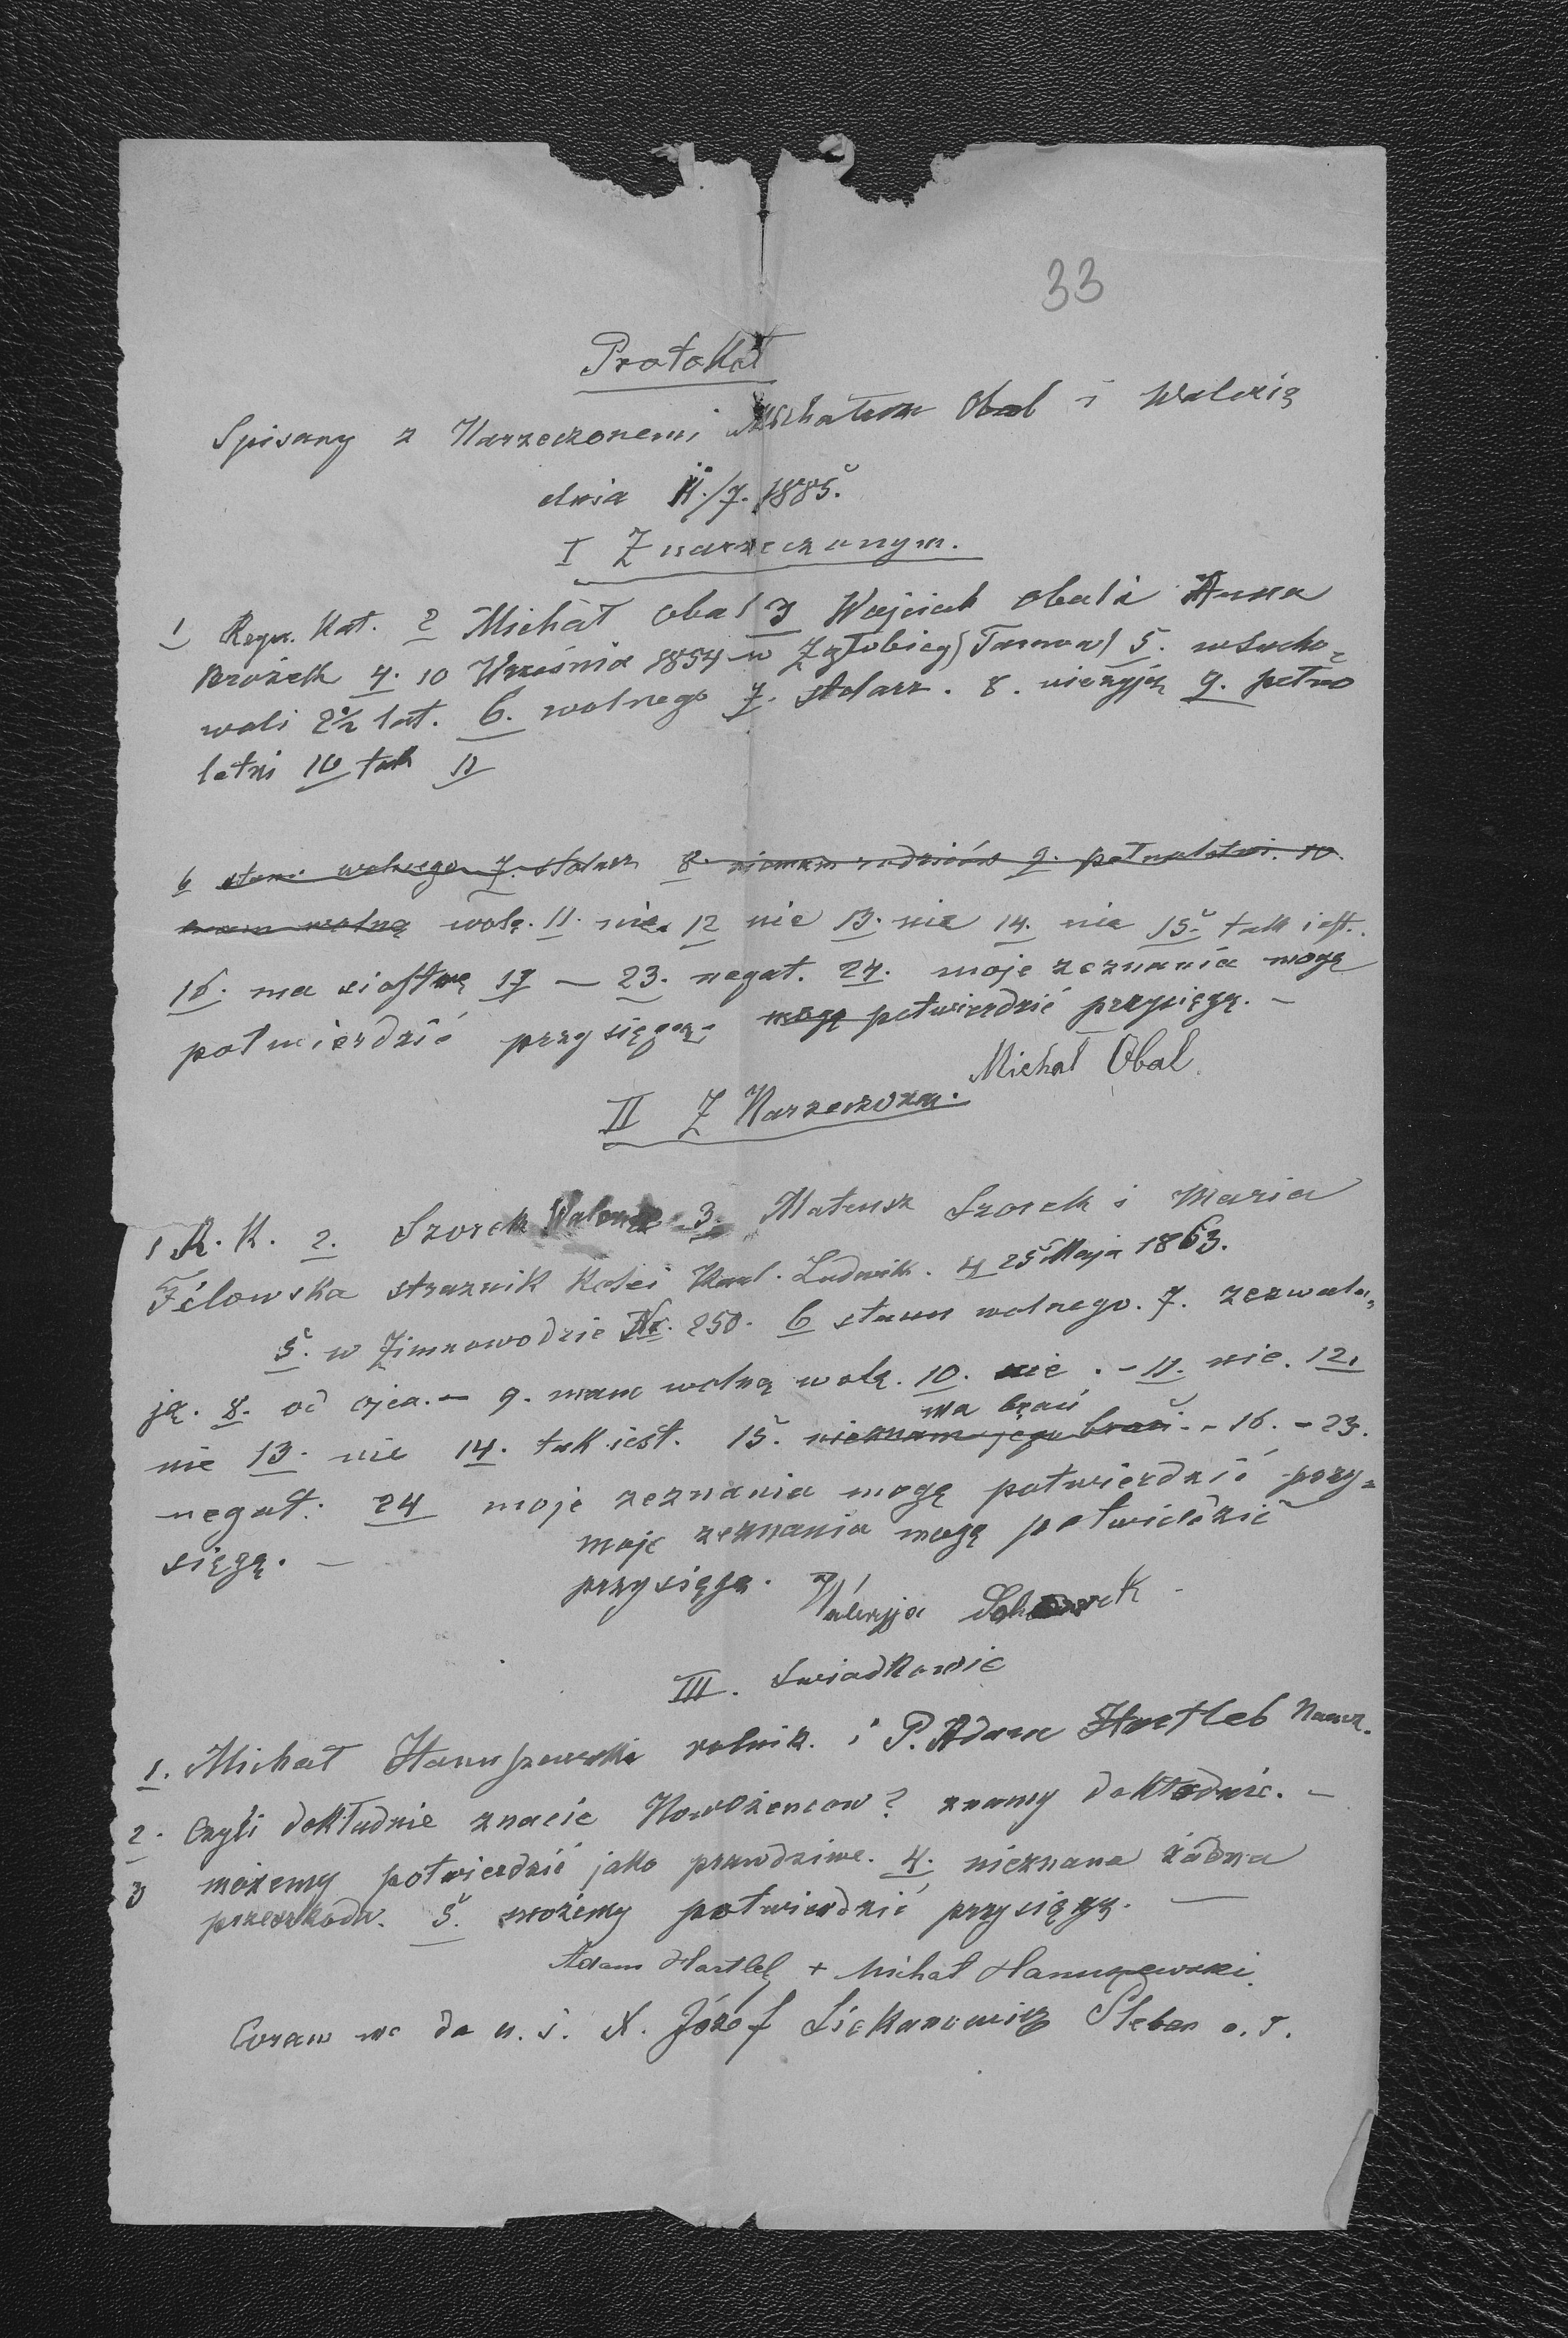 33
Protokół
Spisany z Narzeczonemi Michałem Obal i Walerią
dnia 11./7. 1885.
I Z narzeczonym.
1 Rzym. Kat. 2 Michał Obal 3 Wojciech Obal i Anna
Brożek 4. 10 Września 1854 w Zgłobiey (Tarnow) 5. w Sucho=
woli 2½ lat. 6. wolnego 7. stolarz. 8. nieżyją 9. pełno
letni 10 tak 11
6 stanu wolnego 7. stolarz 8. niemam rodziców 9. pełnoletni. 10.
mam wolną wolę. 11. nie. 12 nie 13. nie 14. nie 15. tak jest.
16. ma siostrę 17 — 23. negat. 24. moje zeznania mogę
potwierdzić przysięgą. mogę potwierdzić przysięgą. —
Michał Obal
II Z Narzeczoną.
1 R. K. 2. Szorek 3. Mateusz Szorek i Maria
Felowska strażnik Kolei Karl. Ludwik. 4 25 Maja 1863.
5. w Zimnowodzie Nr. 250. 6 stanu wolnego. 7. zezwala=
ją. 8. od ojca. — 9. mam wolną wolę. 10. nie. — 11. nie. 12.
ma braci
nie 13. nie 14. tak jest. 15. nieznam jego braci. — 16. — 23.
negat. 24 moje zeznania mogę potwierdzić przy=
sięgą. —
moje zeznania mogę potwierdzić
przysięgą.
Waleryja
III. Swiadkowie
1. Michał Hanuszewski rolnik. i P. Adam Hartleb
2. Czyli dokładnie znacie Nowożencow? znamy dokładnie. —
3 możemy potwierdzić jako prawdziwe. 4. nieznana żadna
przeszkoda. 5. możemy potwierdzić przysięgą. —
Adam Hartleb + Michał Hanuszewski
Coram me da u. s. X. Józef Pleban o. ł.